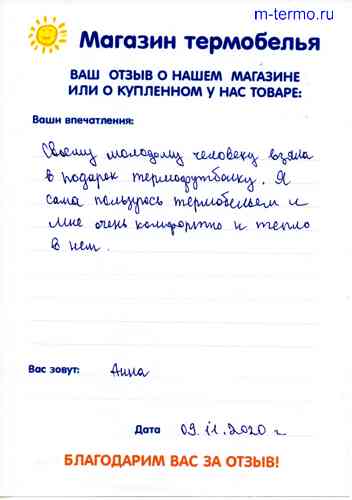 m-termo.ru
Магазин термобелья
ВАШ ОТЗЫВ О НАШЕМ МАГАЗИНЕ
ИЛИ О КУПЛЕННОМ У НАС ТОВАРЕ:
Ваши впечатления:
Своему молодому человеку взяла
в подарок термофутболку. Я
сама пользуюсь термобельем и
мне очень комфортно и тепло
в нем.
Вас зовут: Анна
Дата 09.11.2020 г
БЛАГОДАРИМ ВАС ЗА ОТЗЫВ!